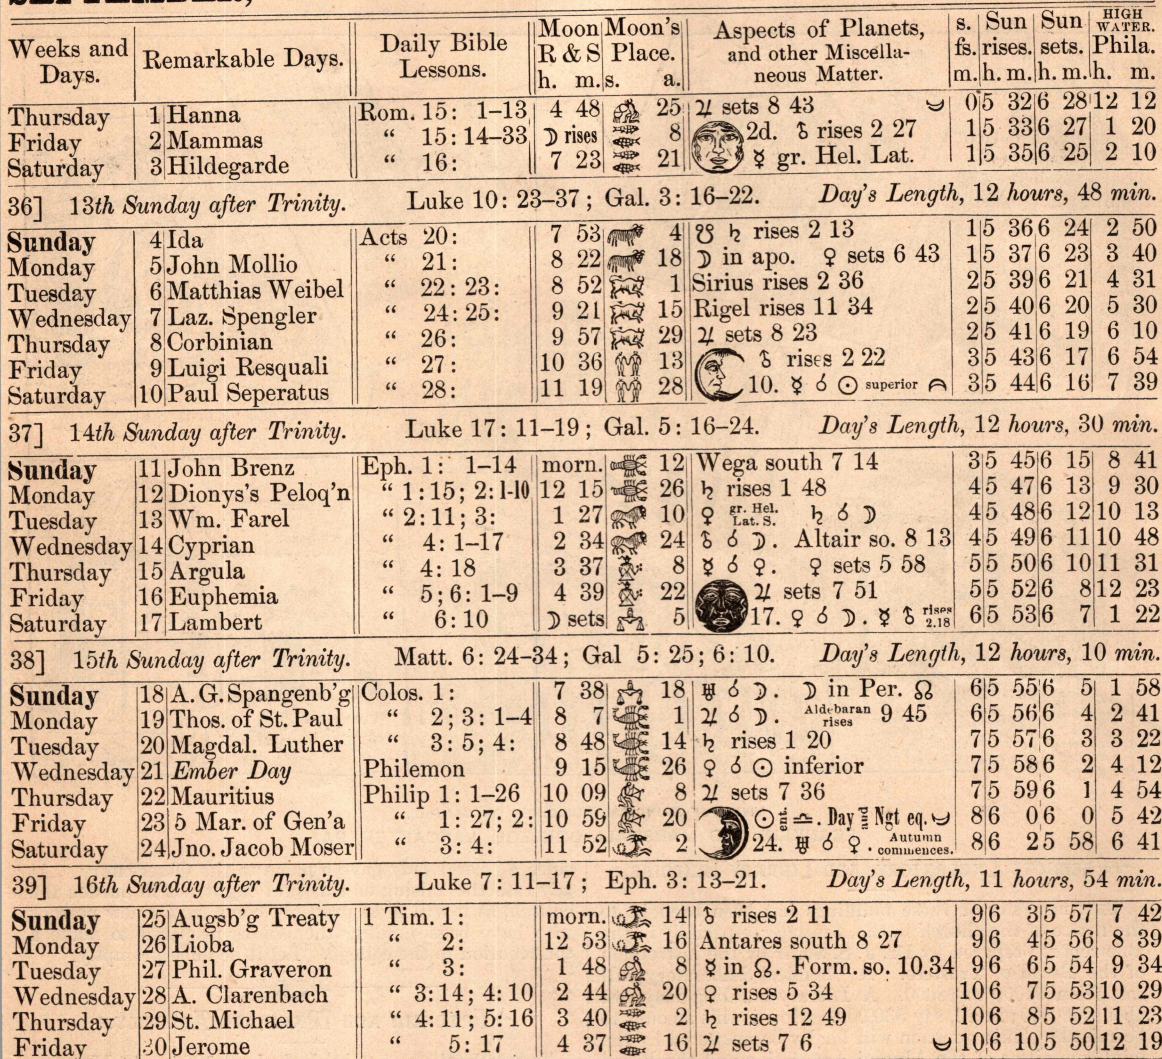 Weeks and Days. Remarkable Days. Daily Bible Lessons. Moon R & S h. m. Moon's Place. s. a. Aspects of Planets, and other Miscellaneous Matter. s. fs. m. Sun rises. h. m. Sun sets. h. m. HIGH WATER. Phila. h. m.
Thursday 1 Hanna Rom. 15: 1–13 4 48 25 ♃ sets 8 43 0 5 32 6 28 12 12
Friday 2 Mammas “ 15: 14–33 ☽ rises 8 2d. ♁ rises 2 27 1 5 33 6 27 1 20
Saturday 3 Hildegarde “ 16: 7 23 21 ☿ gr. Hel. Lat. 1 5 35 6 25 2 10
36] 13th Sunday after Trinity. Luke 10: 23–37; Gal. 3: 16–22. Day's Length, 12 hours, 48 min.
Sunday 4 Ida Acts 20: 7 53 4 ☋ ♄ rises 2 13 1 5 36 6 24 2 50
Monday 5 John Mollio “ 21: 8 22 18 ☽ in apo. ♀ sets 6 43 1 5 37 6 23 3 40
Tuesday 6 Matthias Weibel “ 22: 23: 8 52 1 Sirius rises 2 36 2 5 39 6 21 4 31
Wednesday 7 Laz. Spengler “ 24: 25: 9 21 15 Rigel rises 11 34 2 5 40 6 20 5 30
Thursday 8 Corbinian “ 26: 9 57 29 ♃ sets 8 23 2 5 41 6 19 6 10
Friday 9 Luigi Resquali “ 27: 10 36 13 ♁ rises 2 22 3 5 43 6 17 6 54
Saturday 10 Paul Seperatus “ 28: 11 19 28 10. ☿ ☌ ☉ superior 3 5 44 6 16 7 39
37] 14th Sunday after Trinity. Luke 17: 11–19; Gal. 5: 16–24. Day's Length, 12 hours, 30 min.
Sunday 11 John Brenz Eph. 1: 1–14 morn. 12 Wega south 7 14 3 5 45 6 15 8 41
Monday 12 Dionys's Peloq'n “ 1: 15; 2: 1-10 12 15 26 ♄ rises 1 48 4 5 47 6 13 9 30
Tuesday 13 Wm. Farel “ 2: 11; 3: 1 27 10 ♀ gr. Hel. Lat. S. ♄ ☌ ☽ 4 5 48 6 12 10 13
Wednesday 14 Cyprian “ 4: 1–17 2 34 24 ♁ ☌ ☽. Altair so. 8 13 4 5 49 6 11 10 48
Thursday 15 Argula “ 4: 18 3 37 8 ☿ ☌ ♀. ♀ sets 5 58 5 5 50 6 10 11 31
Friday 16 Euphemia “ 5; 6: 1–9 4 39 22 ♃ sets 7 51 5 5 52 6 8 12 23
Saturday 17 Lambert “ 6: 10 ☽ sets 5 17. ♀ ☌ ☽. ☿ ♁ rises 2.18 6 5 53 6 7 1 22
38] 15th Sunday after Trinity. Matt. 6: 24–34; Gal 5: 25; 6: 10. Day's Length, 12 hours, 10 min.
Sunday 18 A. G. Spangenb'g Colos. 1: 7 38 18 ♅ ☌ ☽. ☽ in Per. ☊ 6 5 55 6 5 1 58
Monday 19 Thos. of St. Paul “ 2; 3: 1–4 8 7 1 ♃ ☌ ☽. Aldebaran rises 9 45 6 5 56 6 4 2 41
Tuesday 20 Magdal. Luther “ 3: 5; 4: 8 48 14 ♄ rises 1 20 7 5 57 6 3 3 22
Wednesday 21 Ember Day Philemon 9 15 26 ♀ ☌ ☉ inferior 7 5 58 6 2 4 12
Thursday 22 Mauritius Philip 1: 1–26 10 09 8 ♃ sets 7 36 7 5 59 6 1 4 54
Friday 23 5 Mar. of Gen'a “ 1: 27; 2: 10 59 20 ☉ ent. ♎. Day and Ngt eq. 8 6 0 6 0 5 42
Saturday 24 Jno. Jacob Moser “ 3: 4: 11 52 2 24. ♅ ☌ ♀. Autumn commences. 8 6 2 5 58 6 41
39] 16th Sunday after Trinity. Luke 7: 11–17; Eph. 3: 13–21. Day's Length, 11 hours, 54 min.
Sunday 25 Augsb'g Treaty 1 Tim. 1: morn. 14 ♁ rises 2 11 9 6 3 5 57 7 42
Monday 26 Lioba “ 2: 12 53 16 Antares south 8 27 9 6 4 5 56 8 39
Tuesday 27 Phil. Graveron “ 3: 1 48 8 ☿ in ☊. Form. so. 10.34 9 6 6 5 54 9 34
Wednesday 28 A. Clarenbach “ 3: 14; 4: 10 2 44 20 ♀ rises 5 34 10 6 7 5 53 10 29
Thursday 29 St. Michael “ 4: 11; 5: 16 3 40 2 ♄ rises 12 49 10 6 8 5 52 11 23
Friday 30 Jerome “ 5: 17 4 37 16 ♃ sets 7 6 10 6 10 5 50 12 19